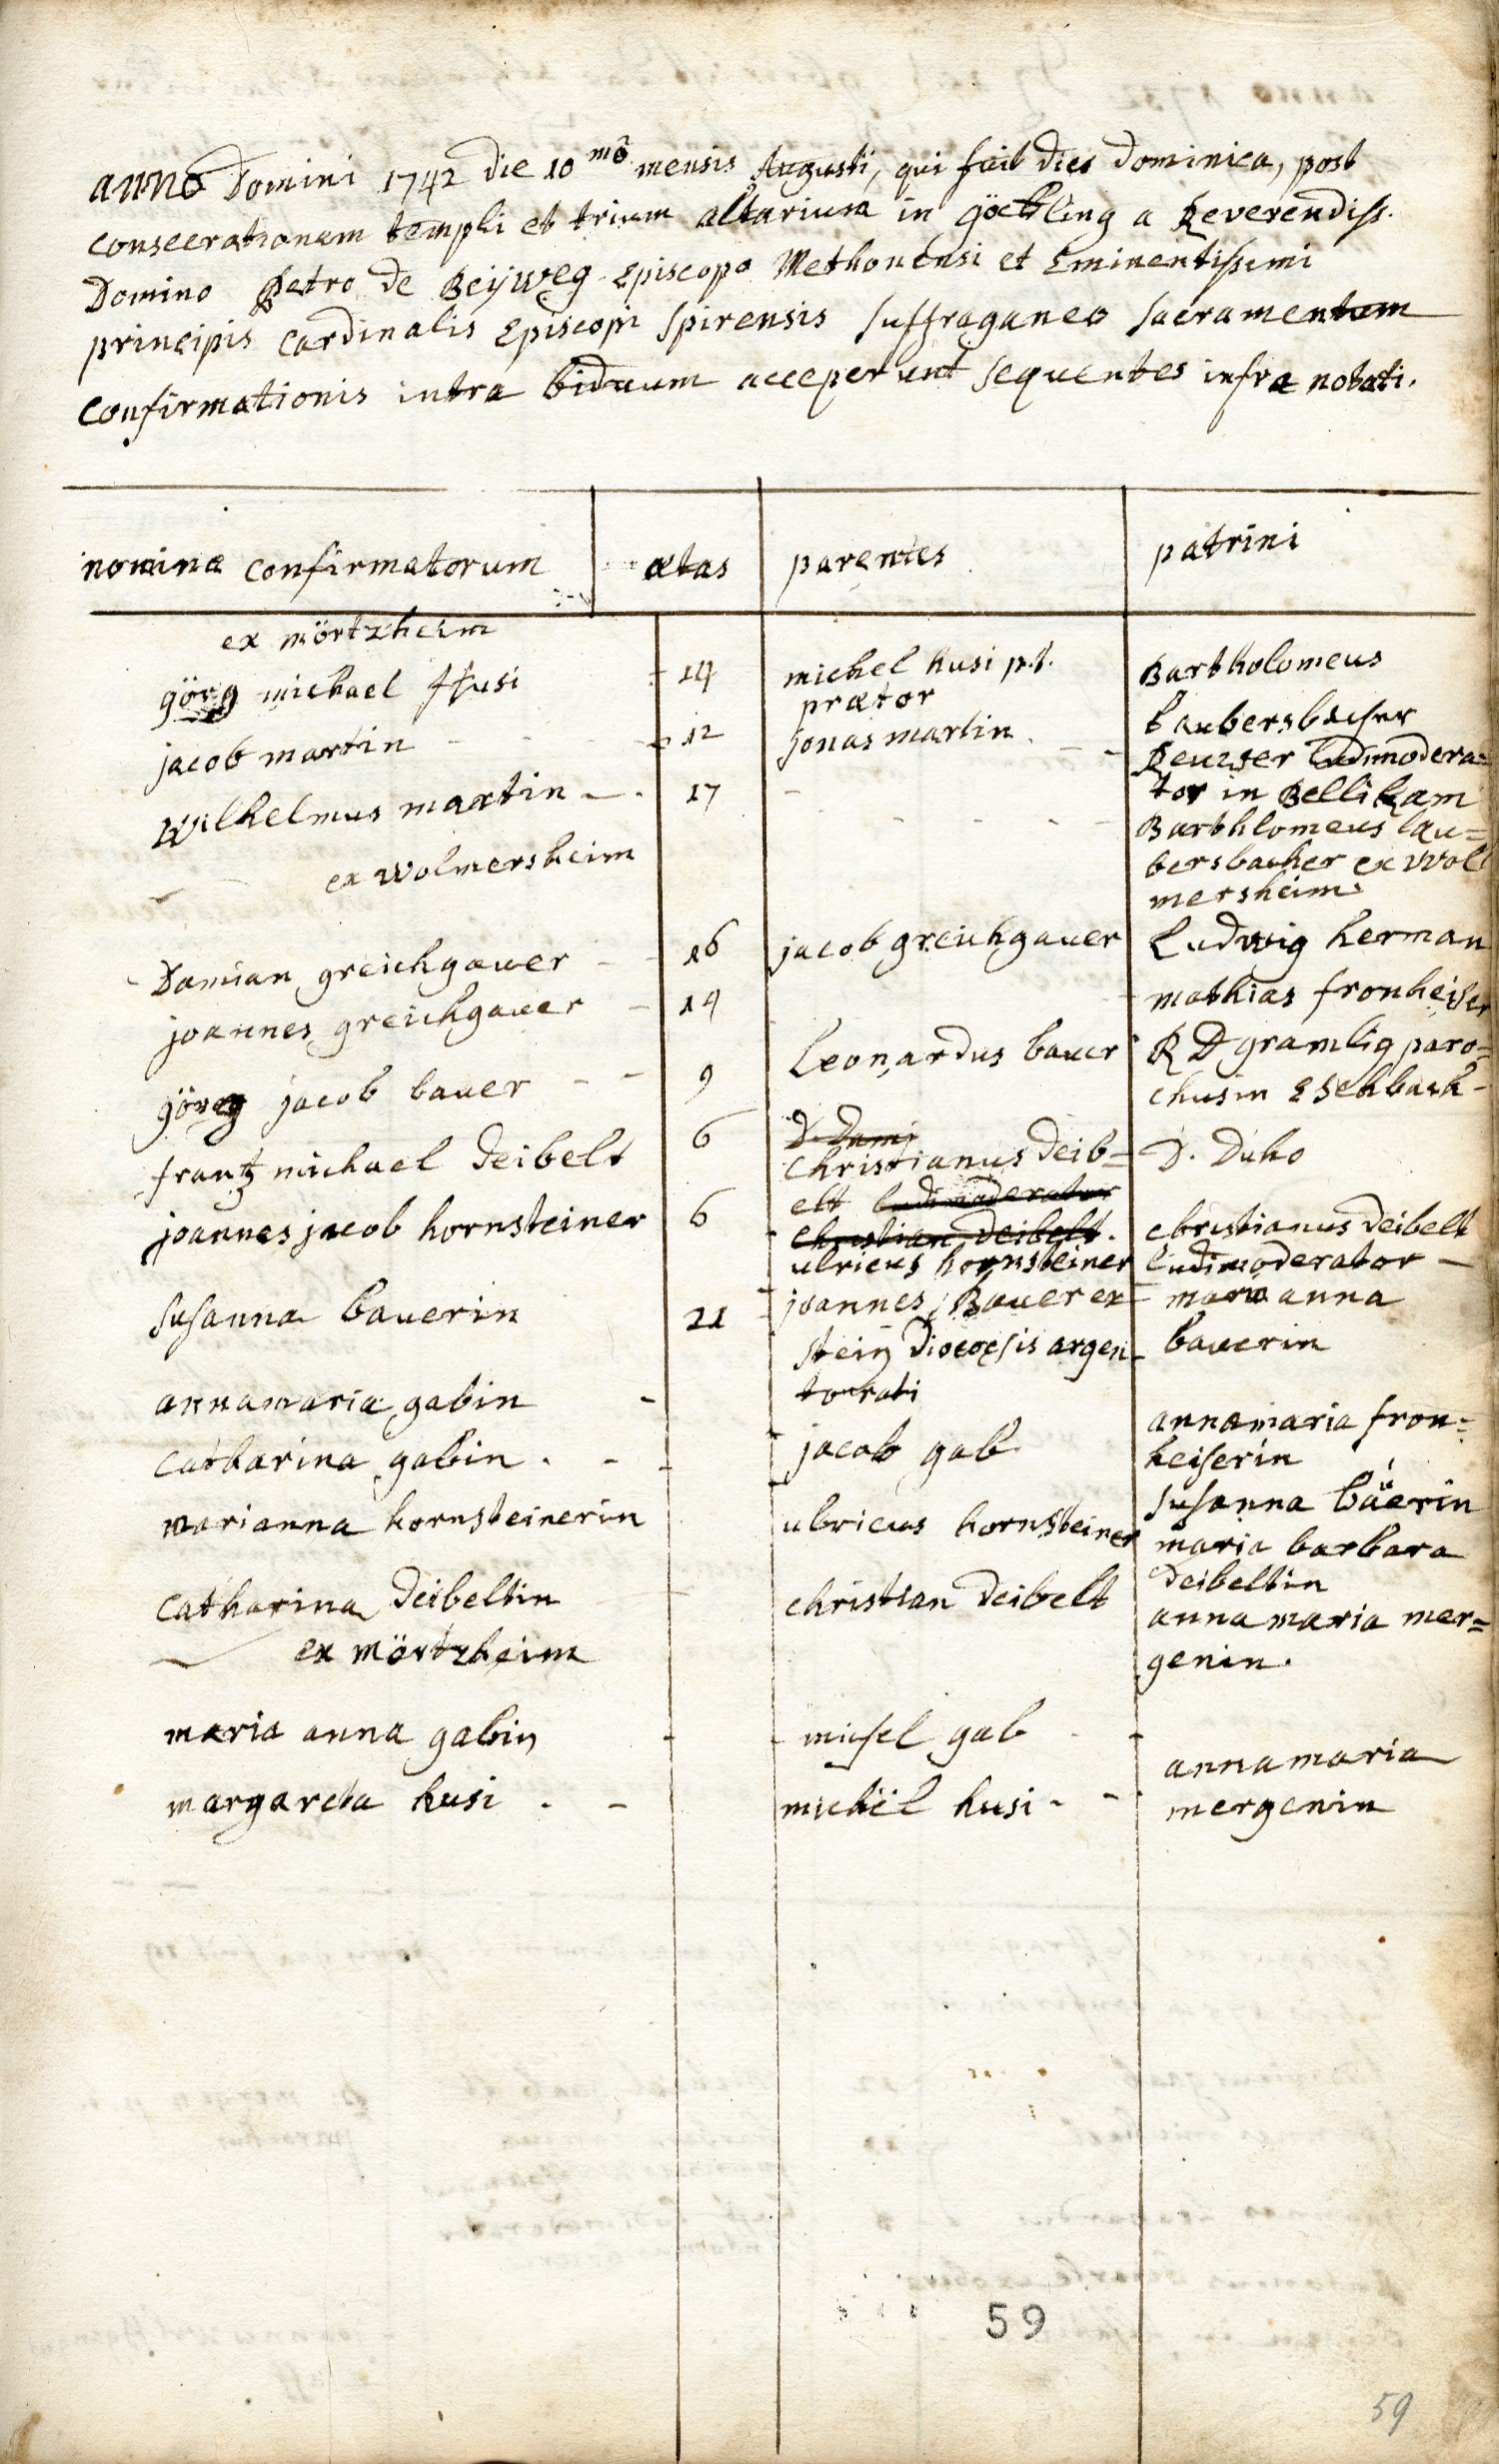 anno Domini 1742 die 10mo mensis Augusti, qui fuit dies Dominica, post
consecrationem templi et trium altarium in göckling a Reverendiss.
Domino Petro de Beijweg Episcopo Methonensi et Eminentissimi
principis cardinalis Episcopi Spirensis suffraganeo sacramentum
confirmationis intra biduum acceperunt sequentes infra notati.
nomina confirmatorum ætas parentes patrini
ex mörtzheim
görg michael Husi 14 michel husi p.t. Bartholomeus
prætor laubersbacher
jacob martin 12 jonas martin Reuzer ludimodera=
Wilhelmus martin 17 tor in Bellikam
Barthlomeus lau=
ex wolmersheim bersbacher ex wol
mersheim.
Damian greichgauer 16 jacob greichgauer Ludwig herman
joannes greichgauer 14 mathias fronheiser
görg jacob bauer 9 Leonardus bauer R D gramlig paro=
chus in Eschbach
frantz michael Deibelt 6 D. Dami
Christianus Deib= D. Duho
elt ludimoderator
joannes jacob hornsteiner 6 christian Deibelt. christianus Deibelt
ulricus hornsteiner ludimoderator
susanna bauerin 21 joannes Bauer ex maria anna
stein Dioecesis argen bauerin
annamaria gabin torati
annamaria fron=
catharina gabin jacob gab heiserin
susanna bäuerin
marianna hornsteinerin ulricus hornsteiner maria barbara
Deibeltin
catharina Deibeltin christian Deibelt anna maria mer=
ex mörtzheim genin.
maria anna gabin michel gab annamaria
margareta husi michël husi mergenin
59
59